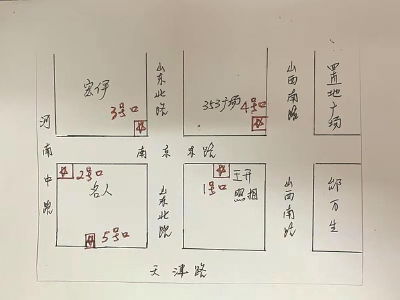 宏伊
3号口
山东北路
353广场
4号口
山西南路
置地广场
河南中路
南京东路
2号口
名人
5号口
山东北路
1号口
王开
照相
山西南路
邵万生
天津路